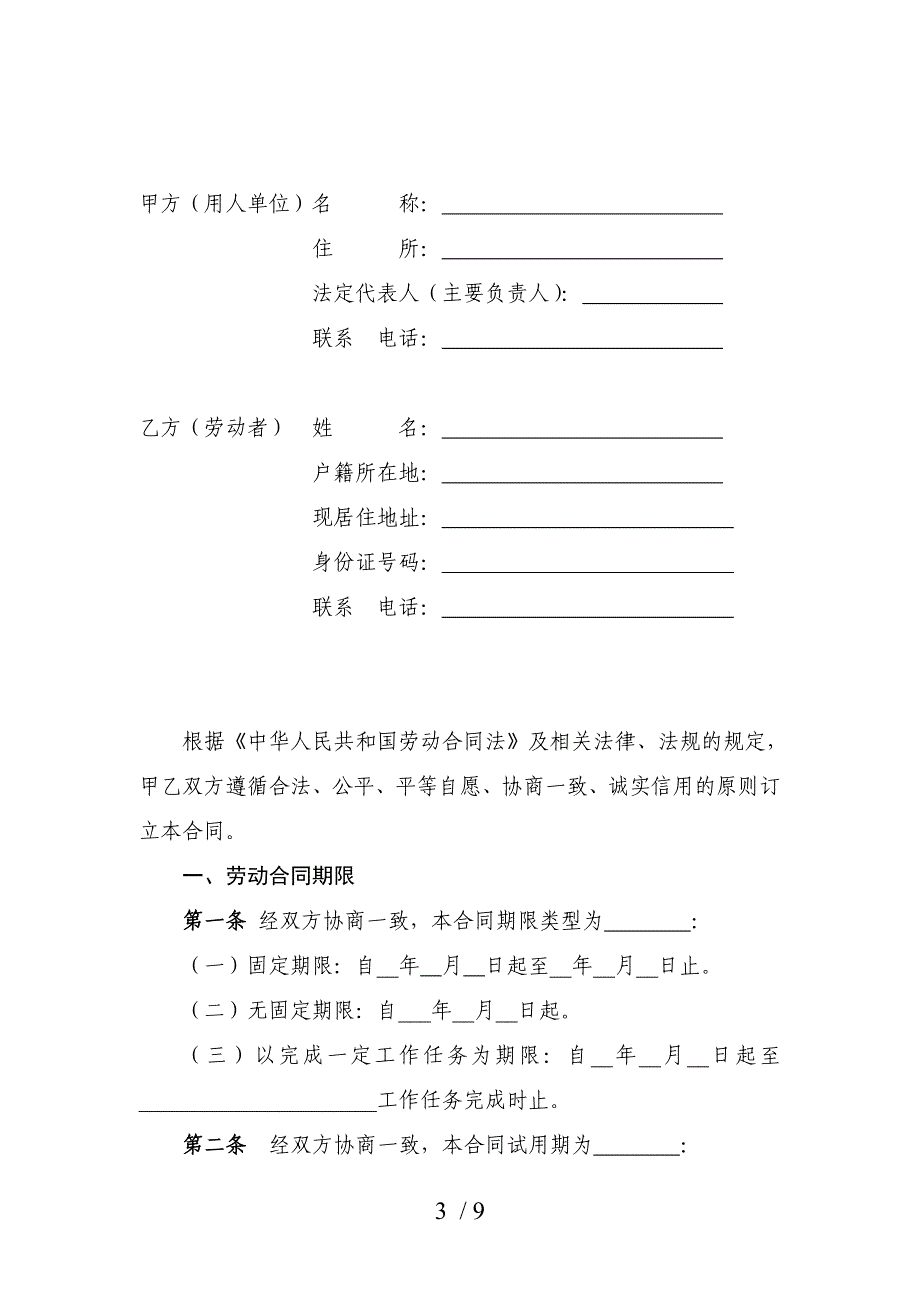 甲方（用人单位）名　　　称：____________________
住　　　所：____________________
法定代表人（主要负责人）：__________
联系　电话：____________________
乙方（劳动者）　姓　　　名：____________________
户籍所在地：____________________
现居住地址：____________________
身份证号码：____________________
联系　电话：____________________
根据《中华人民共和国劳动合同法》及相关法律、法规的规定，
甲乙双方遵循合法、公平、平等自愿、协商一致、诚实信用的原则订
立本合同。
一、劳动合同期限
第一条 经双方协商一致，本合同期限类型为________：
（一）固定期限：自__年__月__日起至__年__月__日止。
（二）无固定期限：自___年__月__日起。
（三）以完成一定工作任务为期限：自__年__月__日起至
______________________工作任务完成时止。
第二条　经双方协商一致，本合同试用期为________：
3 / 9